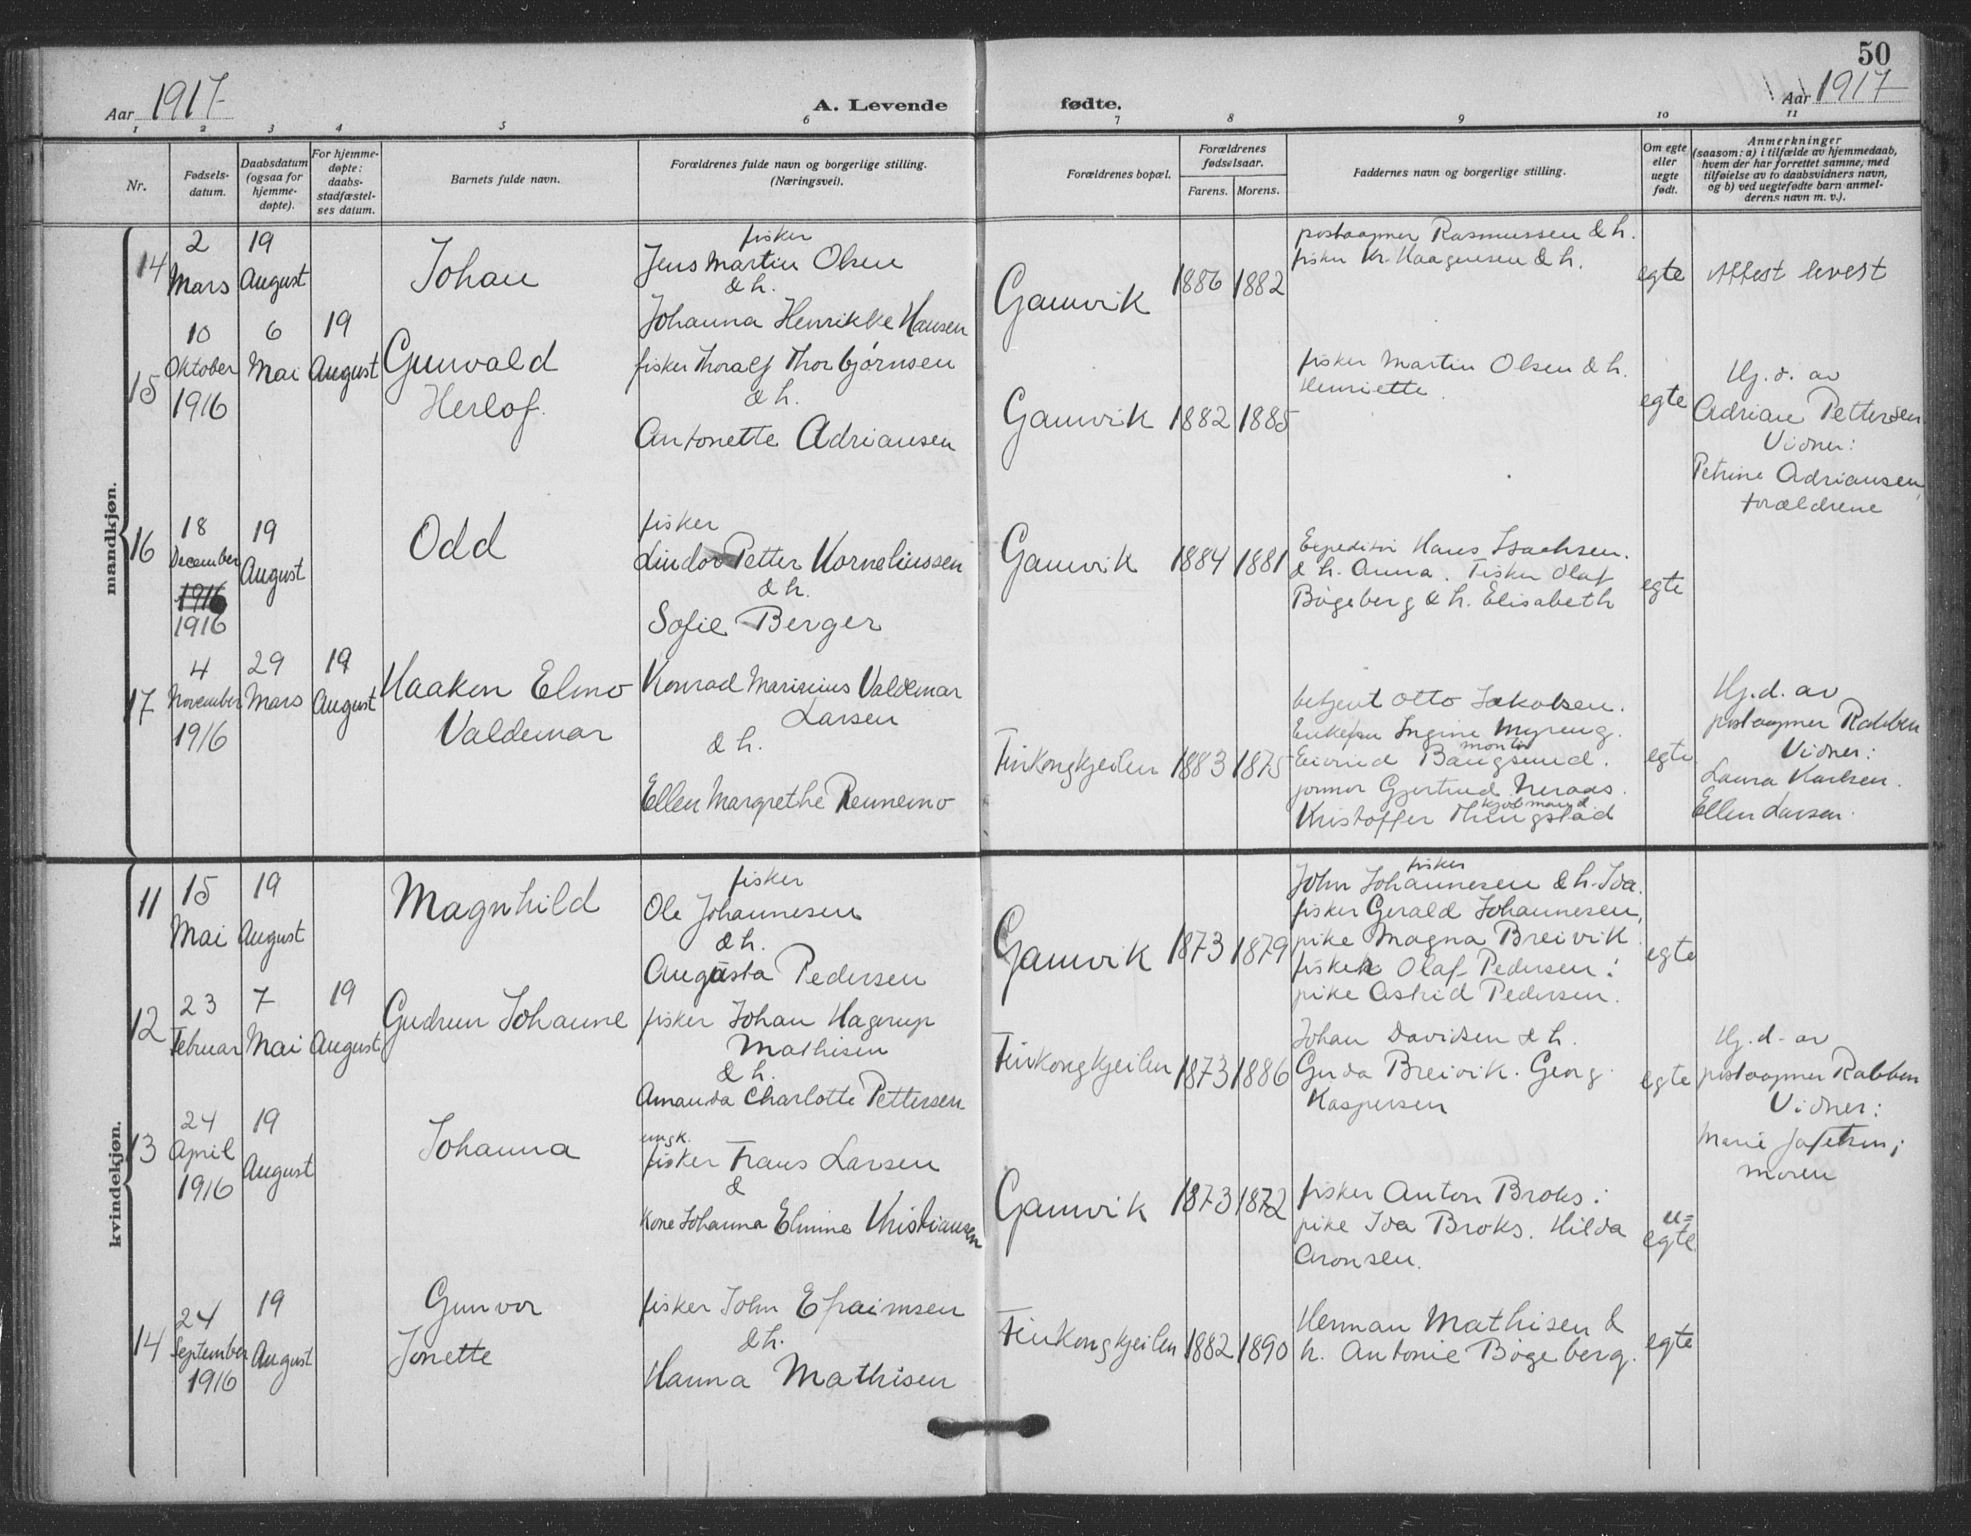 50
Aar 1917
A. Levende fødte.
Aar 1917
1 2 3 4 5 6 7 8 9 10 11
Nr.
Fødsels-
datum.
Daabsdatum
(ogsaa for
hjemme-
døpte).
For hjemme-
døpte:
daabs-
stadfæstel-
ses datum.
Barnets fulde navn.
Forældrenes fulde navn og borgerlige stilling.
(Næringsvei).
Forældrenes bopæl.
Forældrenes
fødselsaar.
Farens. Morens.
Faddernes navn og borgerlige stilling.
Om egte
eller
uegte
født.
Anmerkninger
(saasom: a) i tilfælde av hjemmedaab,
hvem der har forrettet samme, med
tilføielse av to daabsvidners navn,
og b) ved uegtefødte barn anmel-
derens navn m. v.).
mandkjøn.
14
2
Mars
19
August
Johan
fisker
Jens Martin Olsen
& h.
Johanna Henrikke Hansen
Gamvik
1886 1882
postaapner Rasmussen & h.
fisker Kr. Haagensen & h.
egte
Attest levert
15
10
Oktober
1916
6
Mai
19
August
Gunvald
Herlof.
fisker Thoralf Thorbjørnsen
& h.
Antonette Adriansen
Gamvik
1882 1885
fisker Martin Olsen & h.
Henriette.
egte
Hj. d. av
Adrian Pettersen
Vidner:
Petrine Adriansen,
forældrene
16
18
December
1916
1916
19
August
Odd
fisker
Lindor Petter Korneliussen
& h.
Sofie Berger
Gamvik
1884 1881
Expeditør Hans Isachsen.
& h. Anna. Fisker Olaf
Bøgeberg & h. Elisabeth
egte
17
4
November
1916
29
Mars
19
August
Haaken Elmo
Valdemar
Konrad Marisius Valdemar
Larsen
& h.
Ellen Margrethe Rennemo
Finkongkjeilen
1883 1875
betjent Otto Jakobsen.
Enkefru Ingine Myreng.
montør
Eivind Bangsund.
jormor Gjertrud Neraas.
kjøbmand
Kristoffer Thingstad
egte
Hj. d. av
postaapner Rabben
Vidner:
Laura Karlsen.
Ellen Larsen.
kvindekjøn.
11
15
Mai
19
August
Magnhild
fisker
Ole Johannesen
& h.
Augusta Pedersen
Gamvik
1873 1879
fisker
John Johannesen & h. Ida.
fisker Gerald Johannesen,
pike Magna Breivik.
fisker Olaf Pedersen:
pike Astrid Pedersen.
egte
12
23
Februar
7
Mai
19
August
Gudrun Johanne
fisker Johan Hagerup
Mathisen
& h.
Amanda Charlotte Pettersen
Finkongkjeilen
1873 1886
Johan Davidsen & h.
Gerda Breivik. Georg
Kaspersen
egte
Hj. d. av
postaapner Rabben
Vidner:
Marie Jafetsen;
moren
13
24
April
1916
19
August
Johanna
ungk.
fisker Frans Larsen
&
Kone Johanna Elmine Kristiansen
Gamvik
1873 1872
fisker Anton Broks:
pike Ida Broks. Hilda
Aronsen.
u=
egte
14
24
September
1916
19
August
Gunvor
Jonette
fisker John Efraimsen
& h.
Hanna Mathisen
Finkongkjeilen
1882 1890
Herman Mathisen &
h. Antonie Bøgeberg.
egte